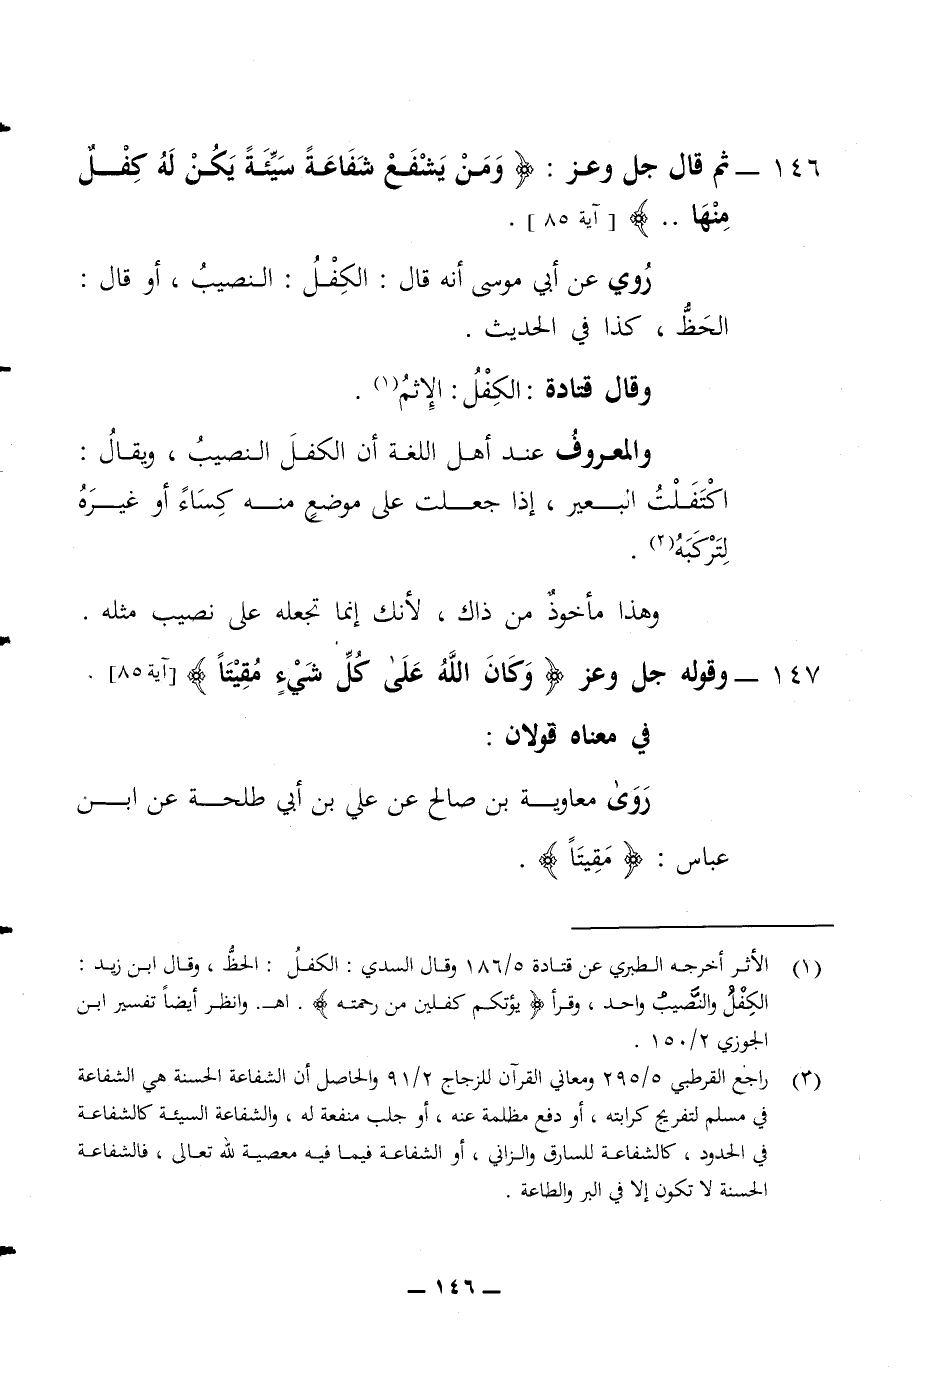 ١٤٦ ــ ثم قال جل وعز : ﴿ وَمَنْ يَشْفَعْ شَفَاعَةً سَيِّئَةً يَكُنْ لَهُ كِفْلٌ
مِنْهَا .. ﴾ [ آية ٨٥ ] .
رُوي عن أبي موسى أنه قال : الكِفْلُ : النصيبُ ، أو قال :
الحَظُّ ، كذا في الحديث .
وقال قتادة : الكِفْلُ : الإِثمُ(١) .
والمعروفُ عند أهل اللغة أن الكفلَ النصيبُ ، ويقالُ :
اكْتَفَلْتُ البعير ، إذا جعلت على موضعٍ منه كِسَاءً أو غيرَهُ
لِتَرْكَبَهُ(٢) .
وهذا مأخوذٌ من ذاك ، لأنك إنما تجعله على نصيب مثله .
١٤٧ ــ وقوله جل وعز ﴿ وَكَانَ اللَّهُ عَلَىٰ كُلِّ شَيْءٍ مُقِيْتَاً ﴾ [آية ٨٥] .
في معناه قولان :
رَوَىٰ معاوية بن صالح عن علي بن أبي طلحة عن ابن
عباس : ﴿ مَقِيتَاً ﴾ .
(١) الأثر أخرجه الطبري عن قتادة ١٨٦/٥ وقال السدي : الكفلُ : الحظُّ ، وقال ابن زيد :
الكِفْلُ والنَّصيبُ واحد ، وقرأ ﴿ يؤتكم كفلين من رحمته ﴾ . اهـ. وانظر أيضاً تفسير ابن
الجوزي ١٥٠/٢ .
(٣) راجع القرطبي ٢٩٥/٥ ومعاني القرآن للزجاج ٩١/٢ والحاصل أن الشفاعة الحسنة هي الشفاعة
في مسلم لتفريج كرابته ، أو دفع مظلمة عنه ، أو جلب منفعة له ، والشفاعة السيئة كالشفاعة
في الحدود ، كالشفاعة للسارق والزاني ، أو الشفاعة فيما فيه معصية لله تعالى ، فالشفاعة
الحسنة لا تكون إلا في البر والطاعة .
ــ ١٤٦ ــ